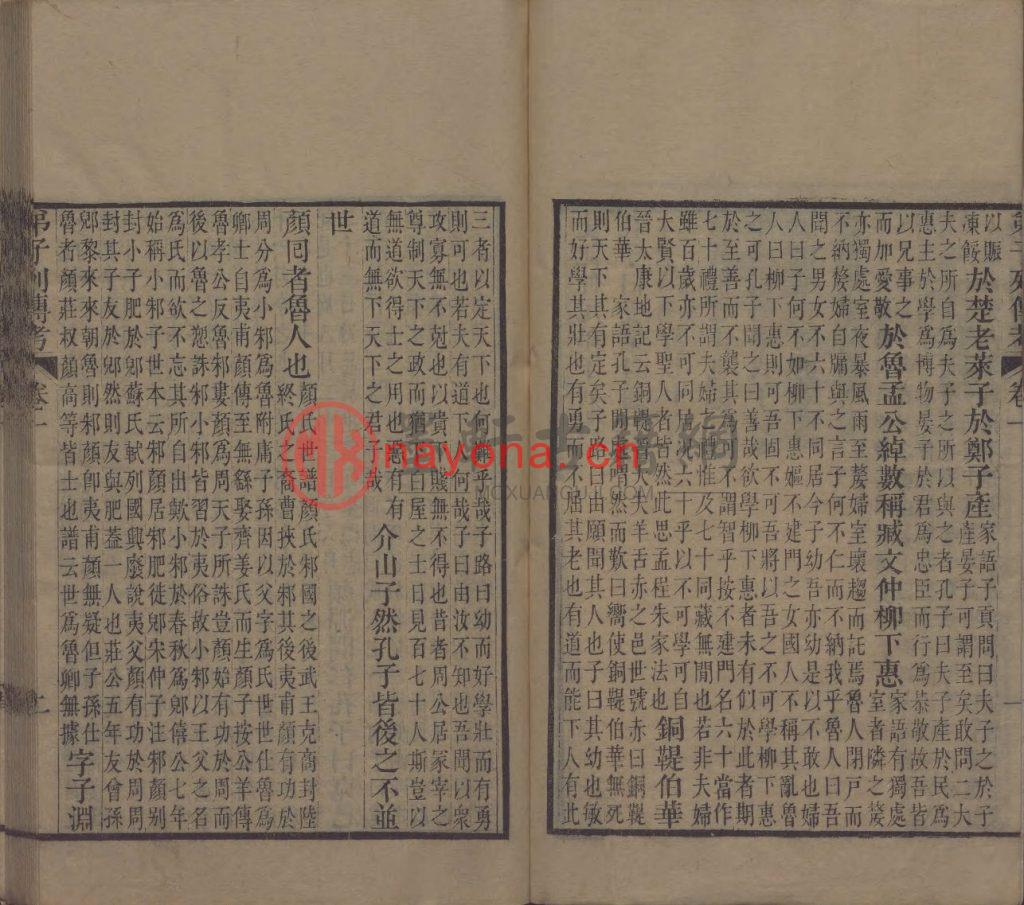 弟子列傳考 卷一 一
以賑
凍餒
於楚老萊子於鄭子產
家語子貢問曰夫子之於子
產晏子可謂至矣敢問二大
夫之所自爲夫子之所以與之者孔子曰夫子產於民爲
惠主於學爲博物晏子於君爲忠臣而行爲恭敬故吾皆
以兄事之
而加愛敬
於魯孟公綽數稱臧文仲柳下惠
家語有獨處
室者隣之嫠
亦獨處室夜暴風雨至嫠婦室壞趨而託焉魯人閉戶而
不納嫠婦自牖與之言子何不仁而不納我乎魯人曰吾
聞之男女不六十不同居今子幼吾亦幼是以不敢也婦
人曰子何不如柳下惠嫗不建門之女國人不稱其亂魯
人曰柳下惠則可吾固不可吾將以吾之不可學柳下惠
之可孔子聞之曰善哉欲學柳下惠者未有似於此者期
於至善而不襲其爲不謂智乎按不建門名六十當作
七十禮所謂夫婦之禮惟及七十同藏無間也若非夫婦
雖百歲亦不可同況不六十乎以不可學可自
大賢以下學聖人者皆然此思孟程朱家法也
銅鞮伯華
晉太康地記云銅鞮晉大夫羊舌赤之邑世號赤曰銅鞮
伯華 家語孔子閒處喟然而歎曰嚮使銅鞮伯華無死
則天下其有定矣子路曰由願聞其人也子曰其幼也敏
而好學其壯也有勇而不屈其老也有道而能下人有此
三者以定天下也何難乎哉子路曰幼而好學壯而有勇
則可也若夫有道下人何哉子曰由汝不知也吾聞以衆
攻寡無不剋也以貴下賤無不得也昔者周公居冢宰之
尊制天下之政而猶下白屋之士日見百七十人斯豈以
無道欲得士之用也惡有有
道而無下天下之君子哉
介山子然孔子皆後之不並
世
顏回者魯人也
顏氏世譜顏氏邾國之後武王克商封陸
終氏之裔曹挾於邾其後夷甫顏有功於
周分爲小邾爲魯附庸子孫因以父字爲氏世世仕魯爲
卿士自夷甫顏傳至無繇娶齊姜氏而生顏子按公羊傳
魯孝公反魯邾婁顏爲周天子所誅豈顏始有功於周而
後以魯之愬誅邾小邾皆習於夷俗故小邾以王父之名
爲氏而欲不忘其所自出歟小邾於春秋爲郳僖公七年
始稱小邾子世本云邾顏居邾肥徒郳宋仲子注邾顏別
封小子肥於郳蘇氏軾列國興廢說友父顏有功於周周
封其子友於郳然則友與肥蓋一人也莊公五年友曾孫
郳黎來來朝魯則邾顏卽夷甫顏無疑但子孫仕
魯者顏莊叔顏高等皆士也譜云世爲魯卿無據
字子淵
弟子列傳考 卷一 二
nayona.cn